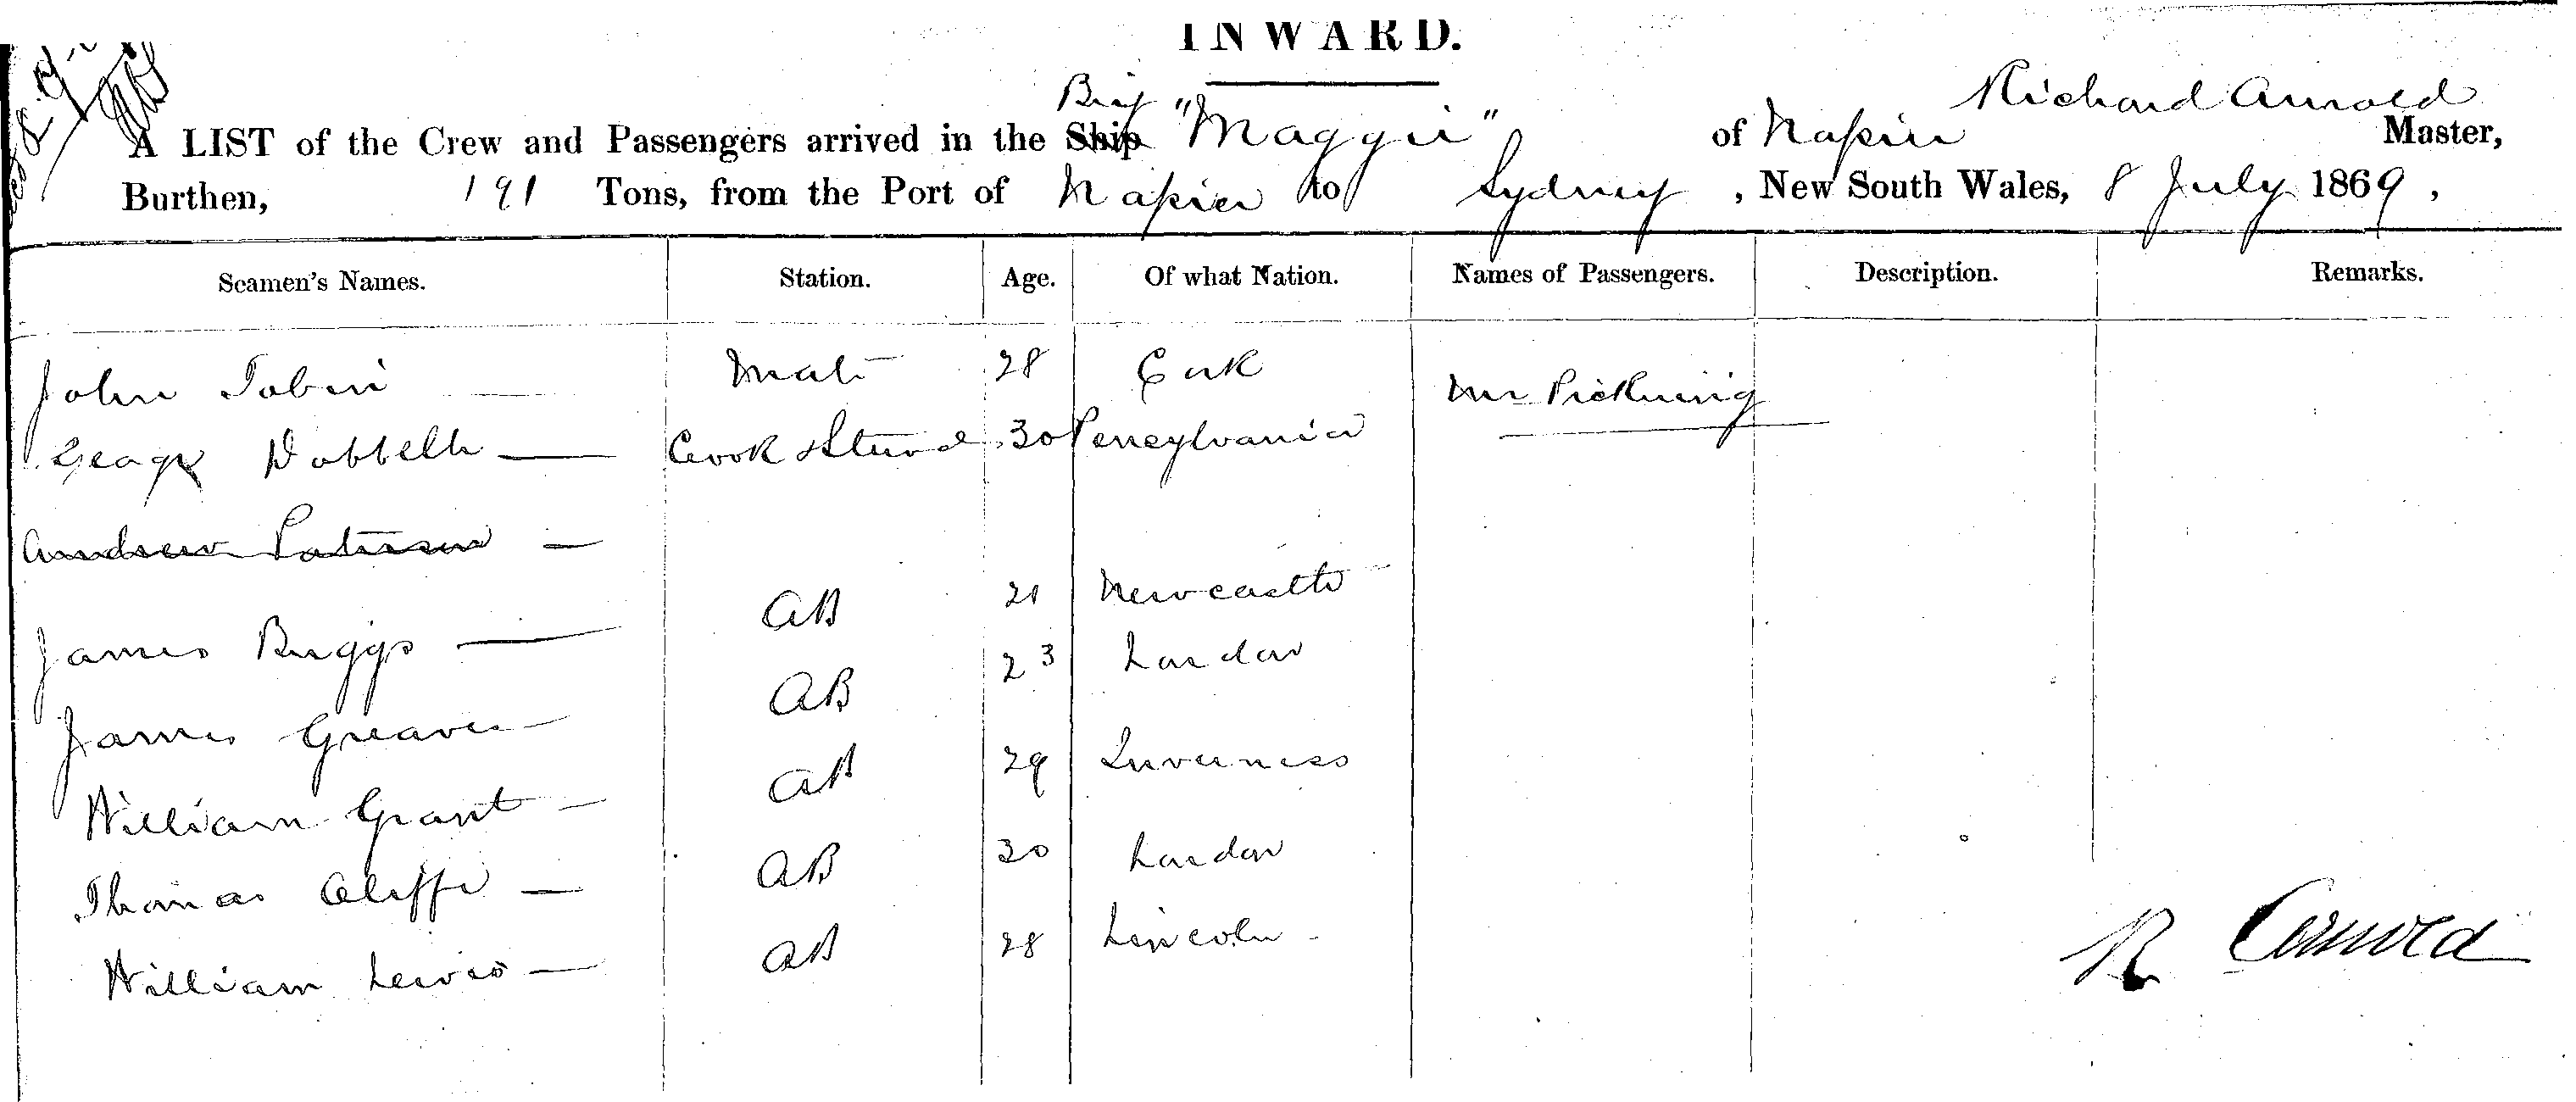 INWARD.
Brig
Richard Arnold
A LIST of the Crew and Passengers arrived in the Ship "Maggie" of Napier Master,
Burthen, 191 Tons, from the Port of Napier to Sydney, New South Wales, 8 July 1869,
Seamen's Names. Station. Age. Of what Nation. Names of Passengers. Description. Remarks.
John Tobin Mate 28 Cork Mr Pickering
George Dobbell Cook & Steward 30 Pensylvania
Andrew Paterson
James Buggs AB 21 Newcastle
James Greaves AB 23 London
William Grant AB 29 Inverness
Thomas Cliffe AB 30 London
William Lewis AB 28 Lincoln
R Arnold